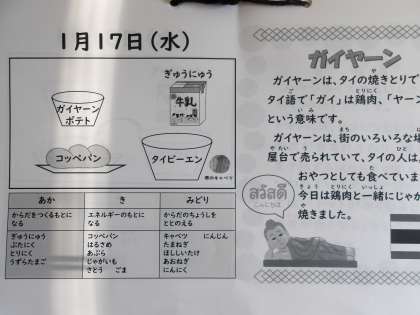 1月17日（水）
ぎゅうにゅう
牛乳
ガイヤーン
ポテト
コッペパン
タイピーエン
あか
き
みどり
からだをつくるもとに
なる
エネルギーのもとに
なる
からだのちょうしを
ととのえる
ぎゅうにゅう
ぶたにく
とりにく
うずらたまご
コッペパン
はるさめ
あぶら
じゃがいも
さとう ごま
キャベツ にんじん
たまねぎ
ほししいたけ
あおねぎ
にんにく
ガイヤーン
ガイヤーンは、タイの焼きとりで
タイ語で「ガイ」は鶏肉、「ヤーン
という意味です。
ガイヤーンは、街のいろいろな場
屋台で売られていて、タイの人は、
おやつとしても食べていま
今日は鶏肉と一緒にじゃか
焼きました。
สวัสดี
こんにちは